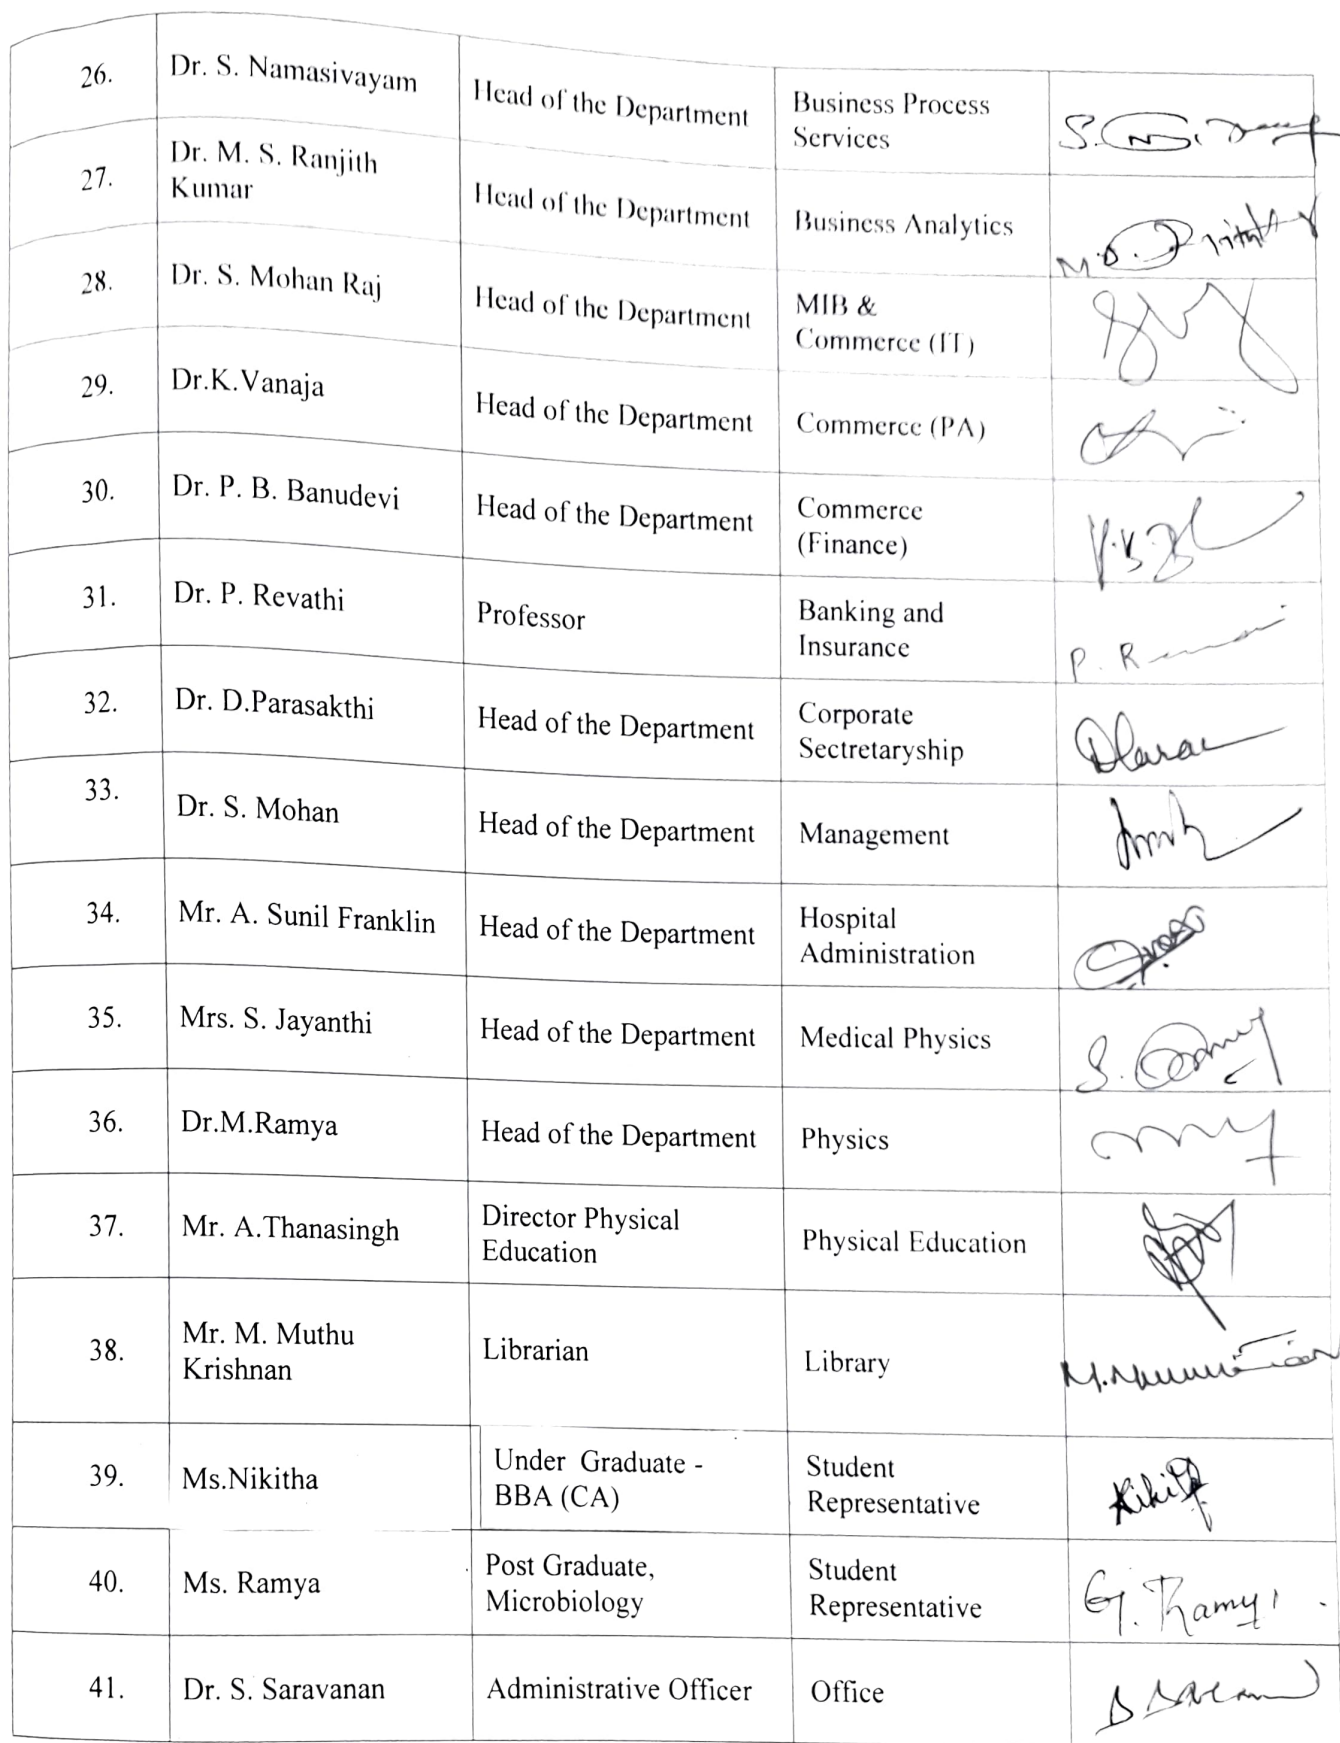 26.
Dr. S. Namasivayam
Head of the Department
Business Process
Services
27.
Dr. M. S. Ranjith
Kumar
Head of the Department
Business Analytics
28.
Dr. S. Mohan Raj
Head of the Department
MIB &
Commerce (IT)
29.
Dr.K.Vanaja
Head of the Department
Commerce (PA)
30.
Dr. P. B. Banudevi
Head of the Department
Commerce
(Finance)
31.
Dr. P. Revathi
Professor
Banking and
Insurance
P. R
32.
Dr. D.Parasakthi
Head of the Department
Corporate
Sectretaryship
33.
Dr. S. Mohan
Head of the Department
Management
34.
Mr. A. Sunil Franklin
Head of the Department
Hospital
Administration
35.
Mrs. S. Jayanthi
Head of the Department
Medical Physics
36.
Dr.M.Ramya
Head of the Department
Physics
37.
Mr. A.Thanasingh
Director Physical
Education
Physical Education
38.
Mr. M. Muthu
Krishnan
Librarian
Library
39.
Ms.Nikitha
Under Graduate -
BBA (CA)
Student
Representative
40.
Ms. Ramya
Post Graduate,
Microbiology
Student
Representative
G. Ramya
41.
Dr. S. Saravanan
Administrative Officer
Office